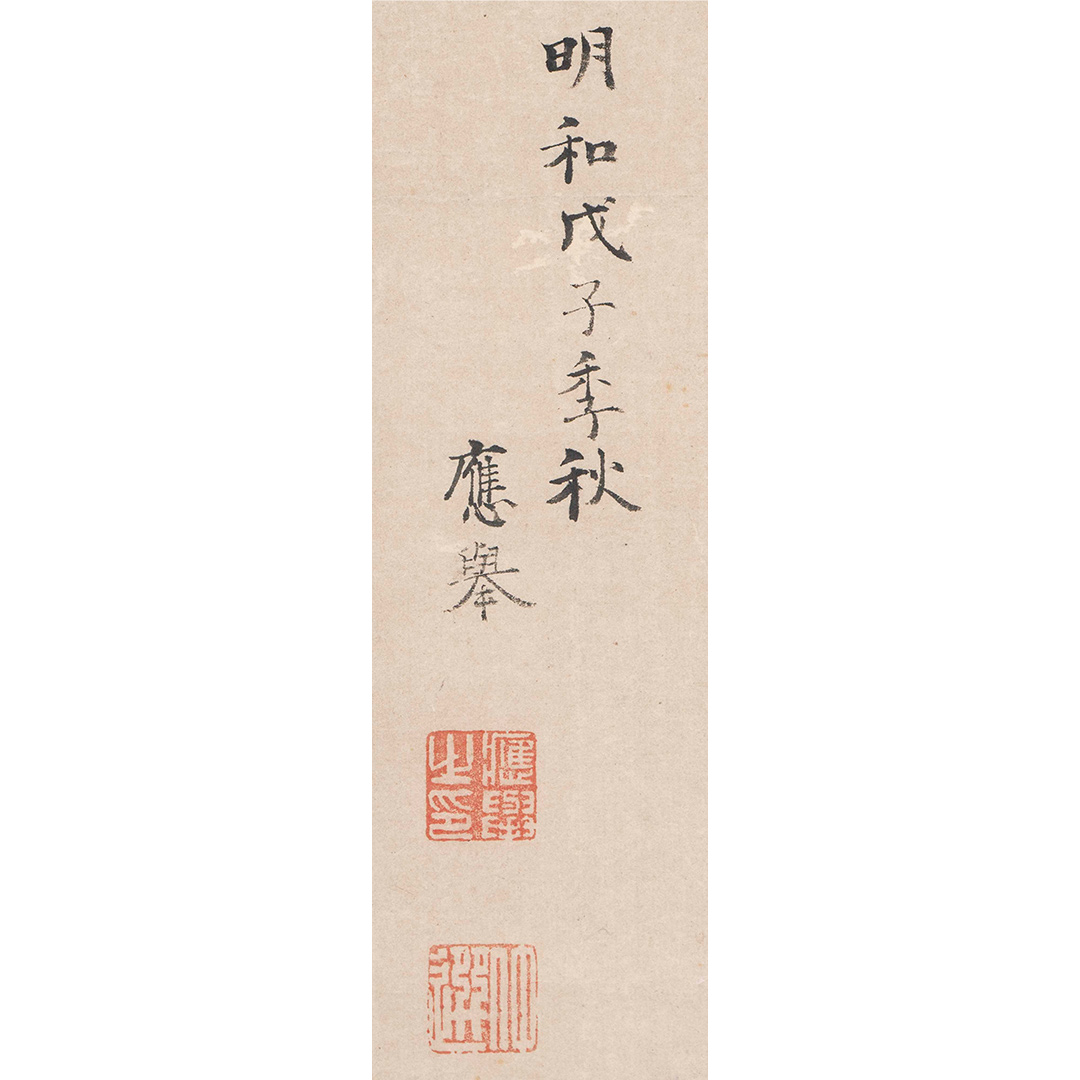 明和戊子季秋
應舉
應舉之印
仲選